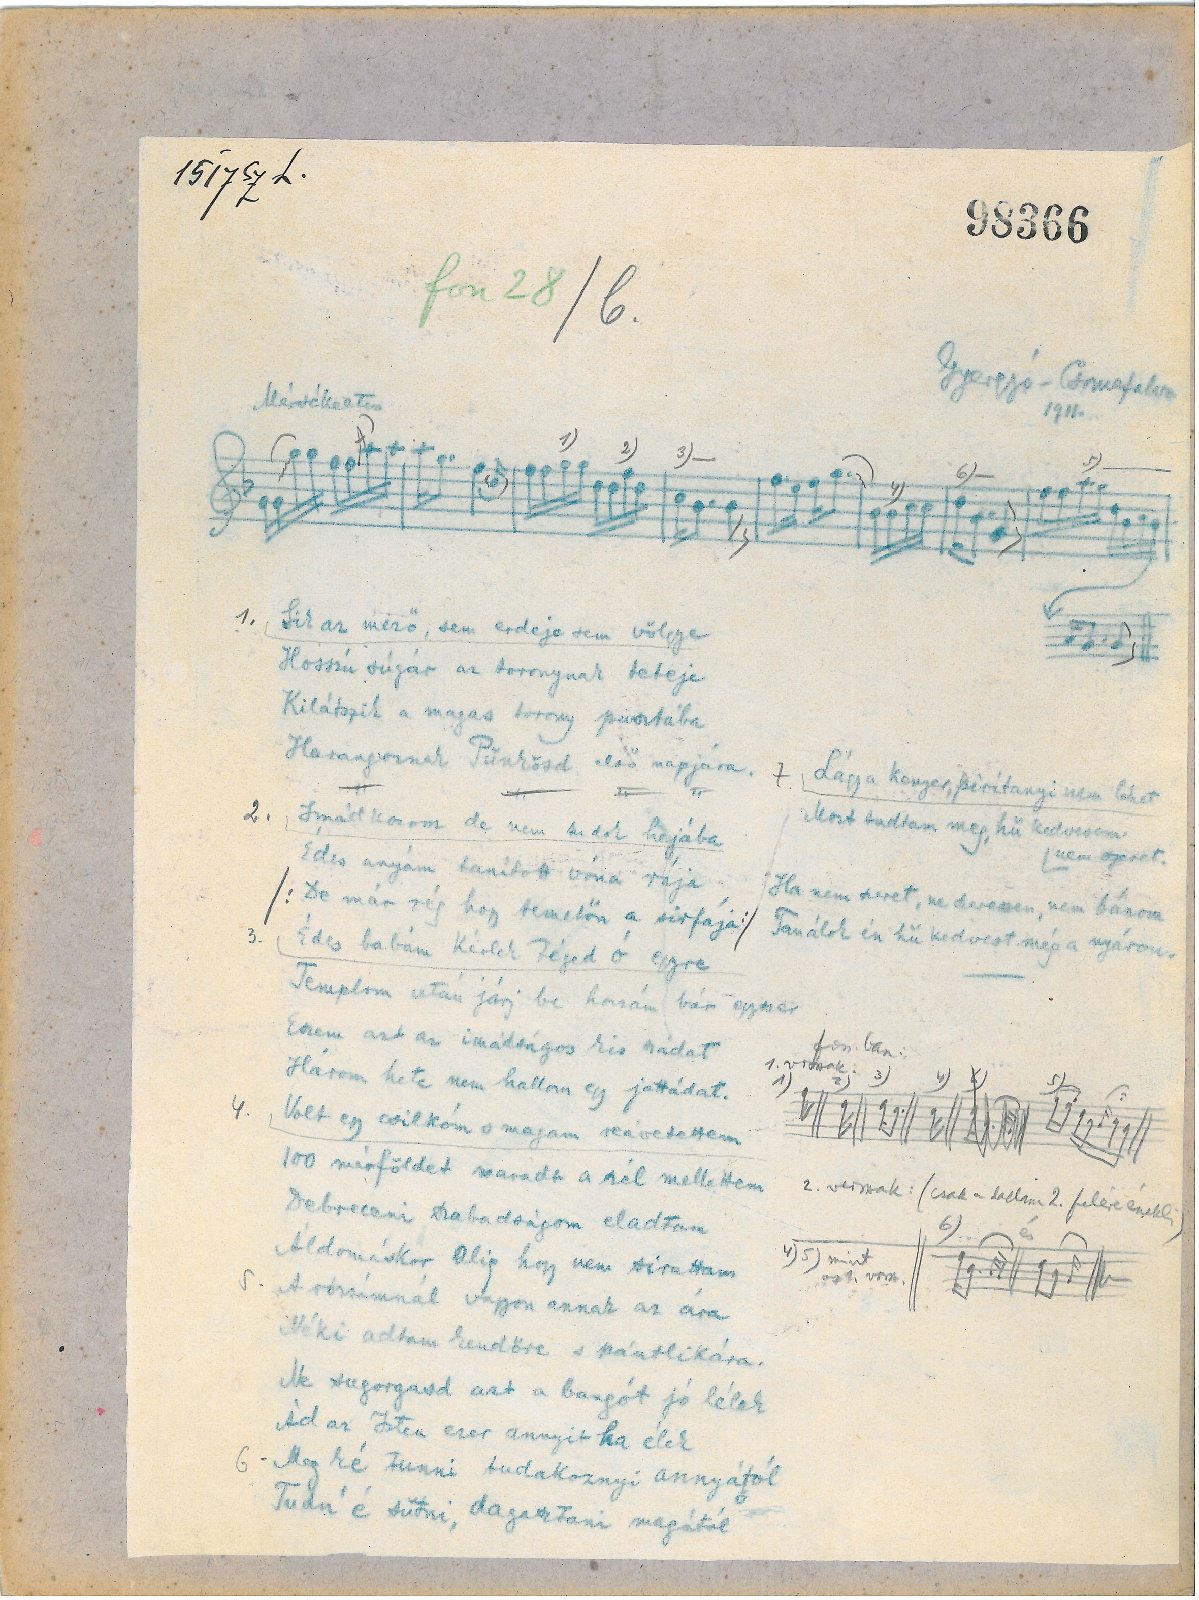 98366
fon 28/6.
Gyergyó-Csomafalva
1911.
Mérsékelten
1) 2) 3) 4) 6) 5)
1. Sik az mező, sem erdeje sem völgye
Hosszú súgár az toronynak teteje
Kilátszik a magas torony pusztába
Harangoznak Pünkösd első napjára.
2. Imádkozom de nem tudok hejába
Édes anyám tanított vóna rája
/: De már rég hogy temetőn a sirfája :/
3. Édes babám kérlek Téged ó egyre
Templom után járj be hozzám bár egyszer
Eszem azt az imádságos kis szádat
Három hete nem hallom egy jottádat.
4. Volt egy csikóm s magam reávetettem
100 mérföldet maradt a szél mellettem
Debreceni szabadságom eladtam
Áldomáskor Alig hogy nem sirattam
5. A rózsámnál vagyon annak az ára
Néki adtam kendőre s pántlikára.
Ne sugorgasd azt a bangót jó lélek
Ád az Isten ezer annyit ha élek
6. Meg ké tunni tudakoznyi annyától
Tudn' é sütni, dagasztani magától
7. Lágya kenyer, pirítanyi nem lehet
Most tudtam meg, hű kedvesem
nem szeret.
Ha nem szeret, ne szeressen, nem bánom
Tanálok én hű kedvest még a nyáron.
fon. ban:
1. versnak:
1) 2) 3) 4) 5)
2. versnak: (csak a dallam 2. felére énekli)
6) és
4) 5) mint